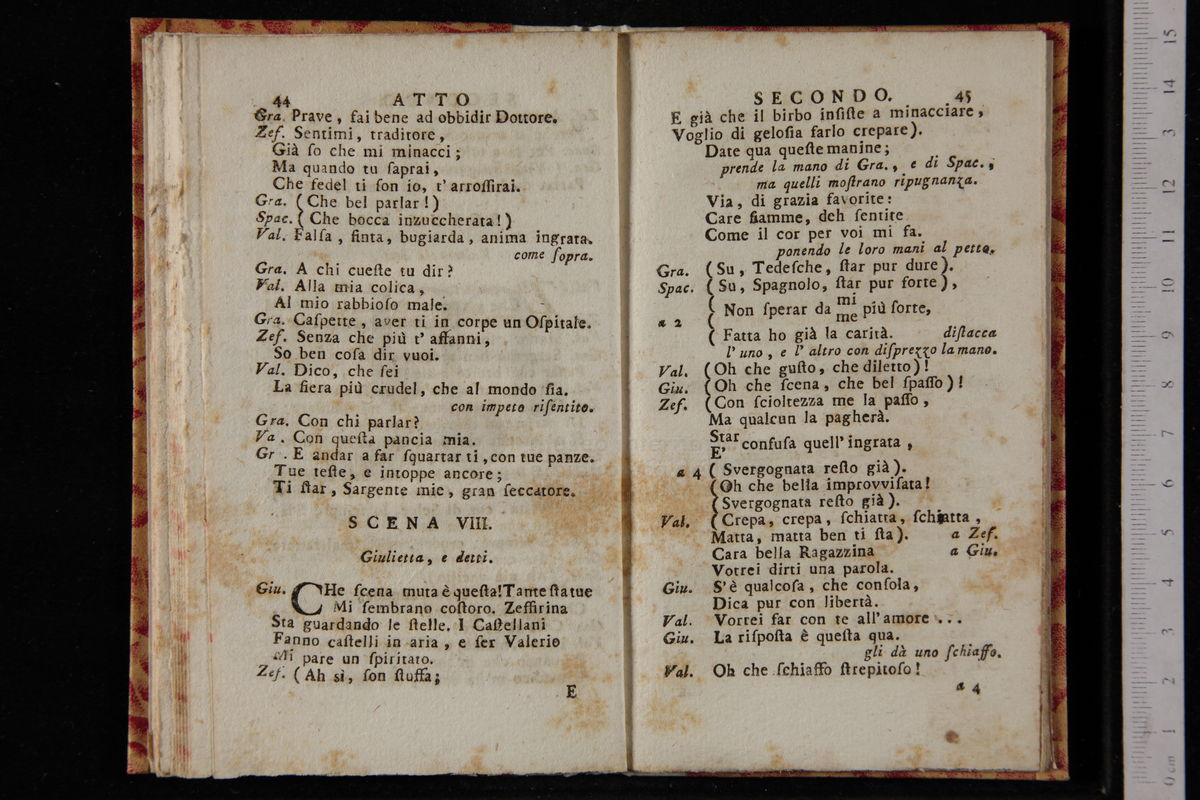 44 ATTO
Gra. Prave, fai bene ad obbidir Dottore.
Zef. Sentimi, traditore,
Già ſo che mi minacci;
Ma quando tu ſaprai,
Che fedel ti ſon io, t'arroſſirai.
Gra. (Che bel parlar!)
Spac. (Che bocca inzuccherata!)
Val. Falſa, finta, bugiarda, anima ingrata.
come ſopra.
Gra. A chi cueſte tu dir?
Val. Alla mia colica,
Al mio rabbioſo male.
Gra. Caſpette, aver ti in corpe un Oſpitale.
Zef. Senza che più t'affanni,
So ben coſa dir vuoi.
Val. Dico, che ſei
La fiera più crudel, che al mondo ſia.
con impeto riſentito.
Gra. Con chi parlar?
Va . Con queſta pancia mia.
Gr . E andar a far ſquartar ti, con tue panze.
Tue teſte, e intoppe ancore;
Ti ſtar, Sargente mie, gran ſeccatore.
SCENA VIII.
Giulietta, e detti.
Giu. CHe ſcena muta è queſta! Tante ſtatue
Mi ſembrano coſtoro. Zeffirina
Sta guardando le ſtelle. I Caſtellani
Fanno caſtelli in aria, e ſer Valerio
Mi pare un ſpiritato.
Zef. (Ah sì, ſon ſtuffa;
E
SECONDO. 45
E già che il birbo inſiſte a minacciare,
Voglio di geloſia farlo crepare).
Date qua queſte manine;
prende la mano di Gra., e di Spac.,
ma quelli moſtrano ripugnanza.
Via, di grazia favorite:
Care fiamme, deh ſentite
Come il cor per voi mi fa.
ponendo le loro mani al petto.
Gra. (Su, Tedeſche, ſtar pur dure).
Spac. (Su, Spagnolo, ſtar pur forte),
( Non ſperar da mi
a 2 ( me più ſorte,
( Fatta ho già la carità. diſtacca
l'uno, e l'altro con diſprezzo la mano.
Val. (Oh che guſto, che diletto)!
Giu. (Oh che ſcena, che bel ſpaſſo)!
Zef. (Con ſcioltezza me la paſſo,
Ma qualcun la pagherà.
Star
E' confuſa quell'ingrata,
a 4 ( Svergognata reſto già).
(Oh che bella improvviſata!
(Svergognata reſto già).
Val. (Crepa, crepa, ſchiatta, ſchiatta,
Matta, matta ben ti ſta). a Zef.
Cara bella Ragazzina a Giu.
Vorrei dirti una parola.
Giu. S'è qualcoſa, che conſola,
Dica pur con libertà.
Val. Vorrei far con te all'amore ...
Giu. La riſpoſta è queſta qua.
gli dà uno ſchiaffo.
Val. Oh che ſchiaffo ſtrepitoſo!
a 4
15
14
13
12
11
10
9
8
7
6
5
4
3
2
1
0 cm